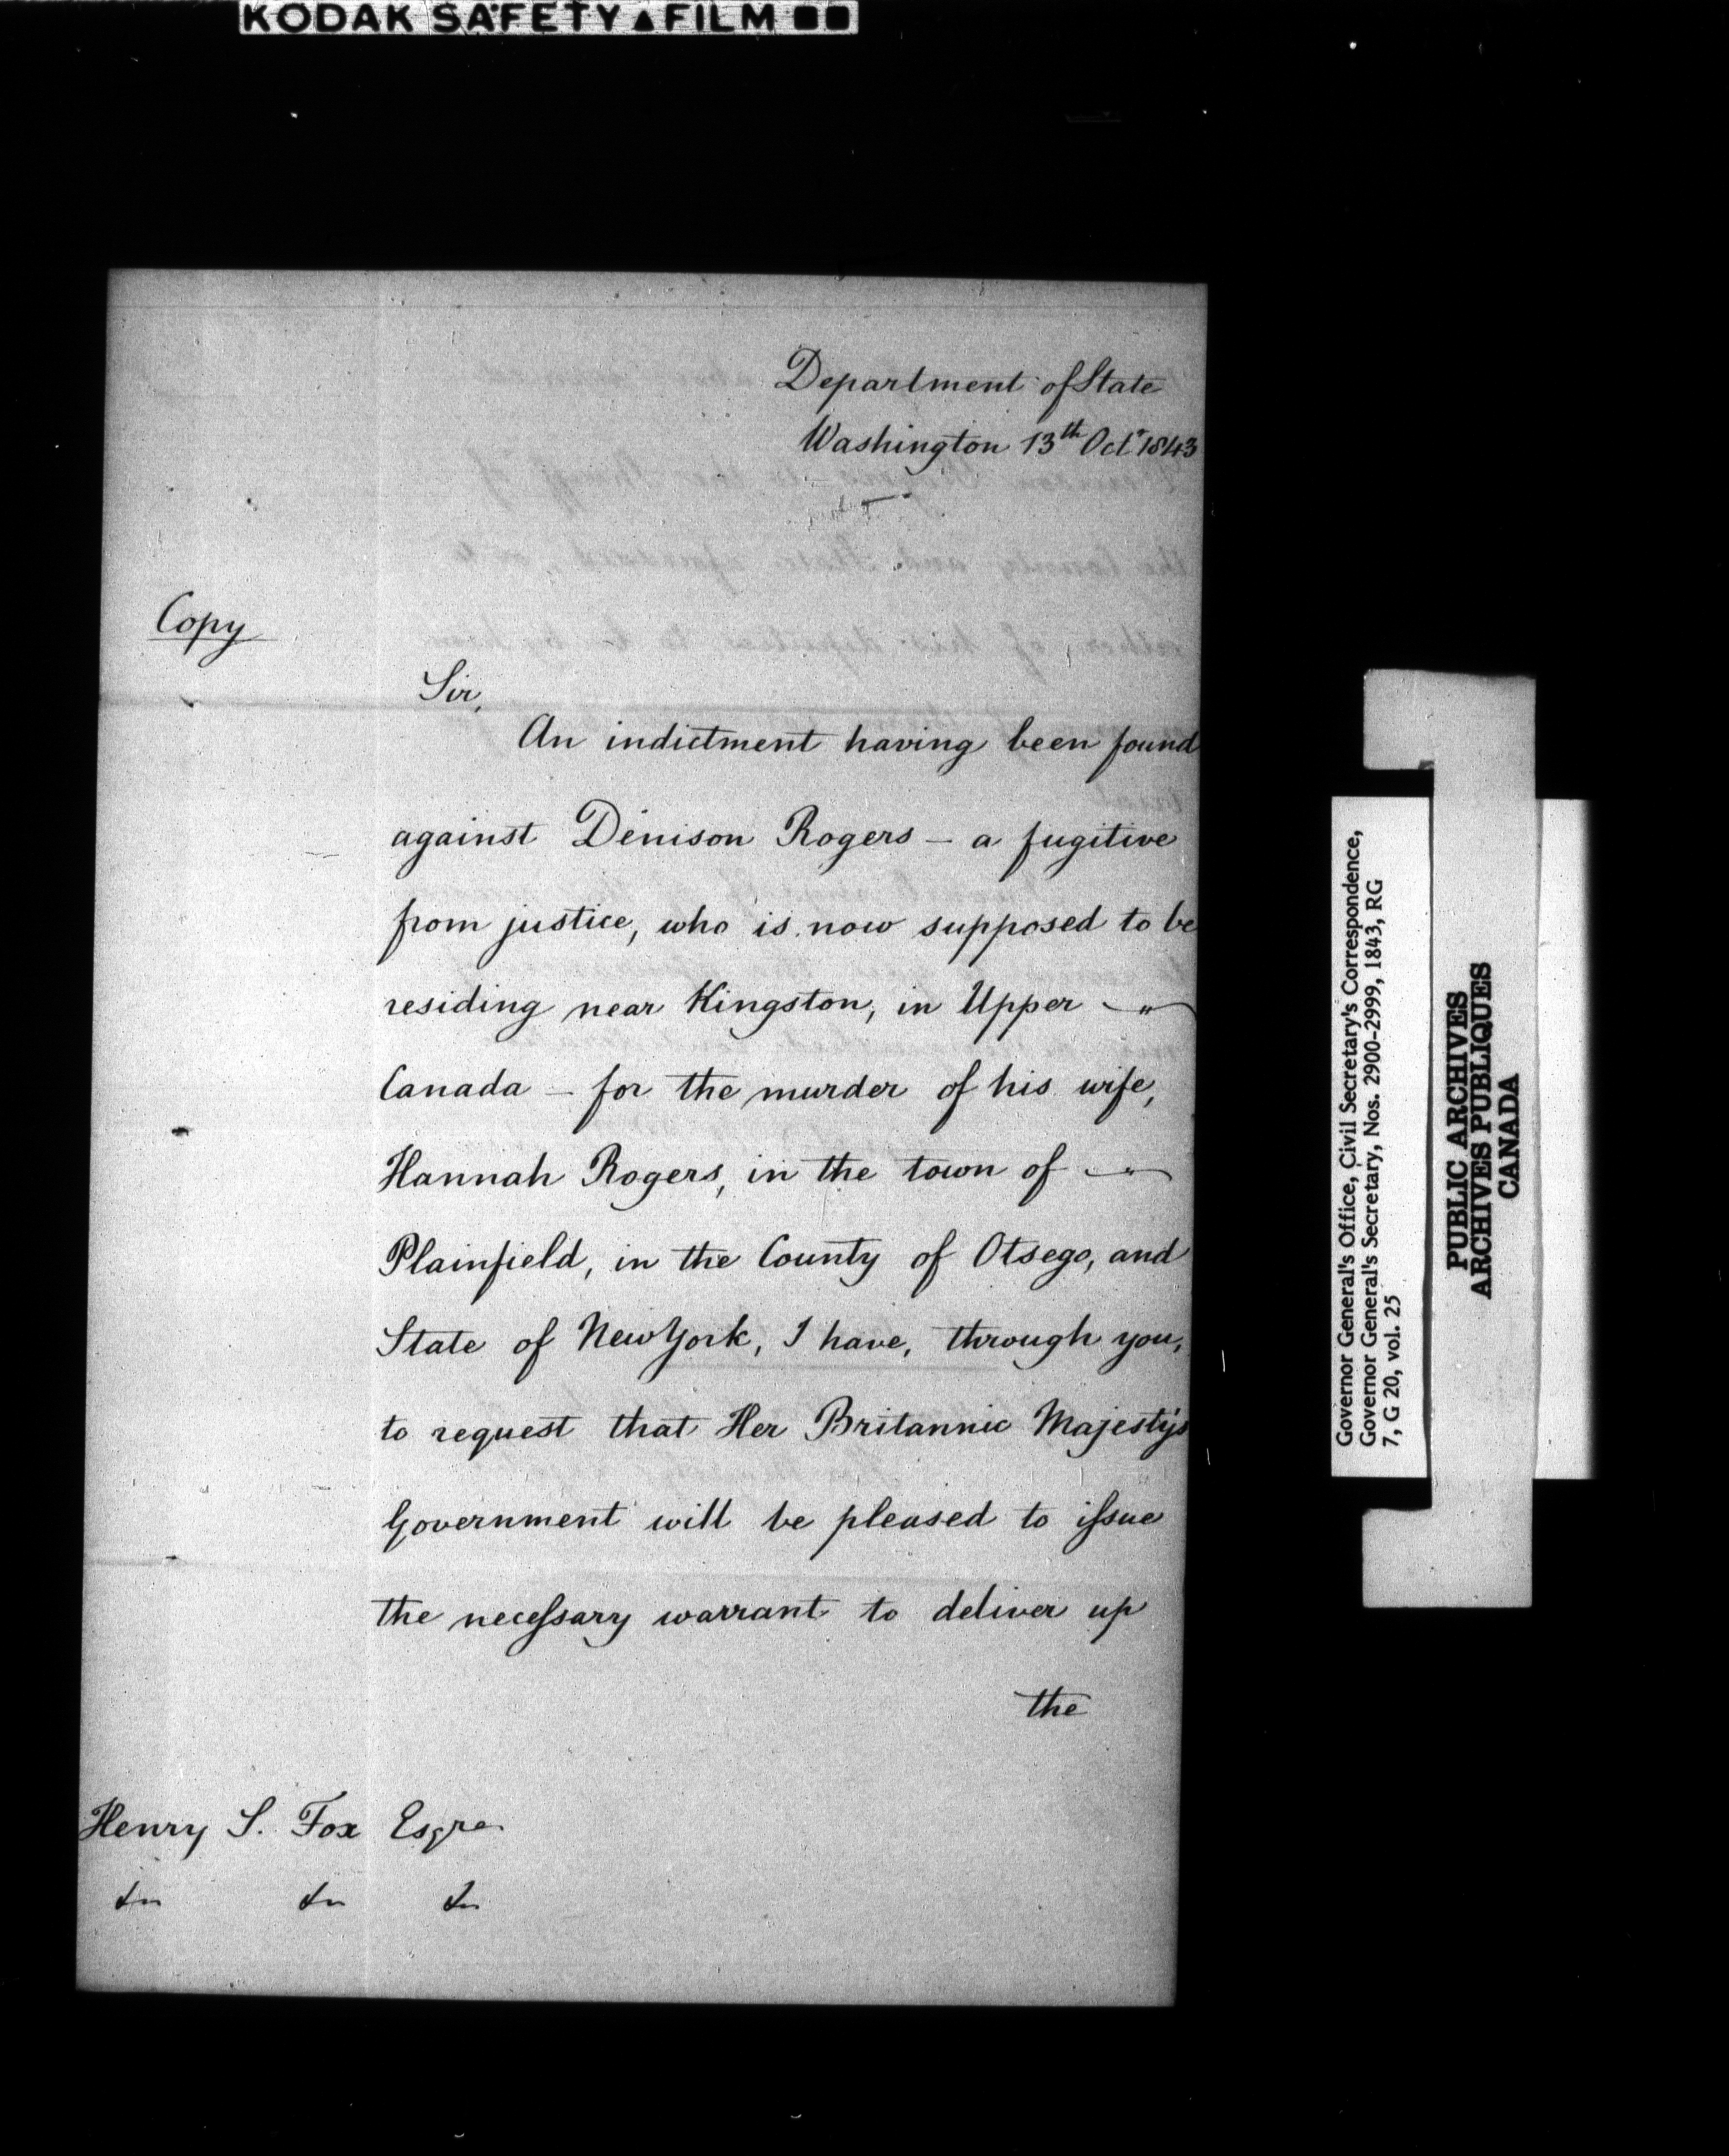 KODAK SAFETY▲FILM ■■
Department of State
Washington 13th Octr 1843
Copy
Sir,
An indictment having been found
against Denison Rogers – a fugitive
from justice, who is now supposed to be
residing near Kingston, in Upper – "
Canada – for the murder of his wife,
Hannah Rogers, in the town of – "
Plainfield, in the County of Otsego, and
State of New York, I have, through you,
to request that Her Britannic Majesty's
Government will be pleased to issue
the necessary warrant to deliver up
the
Henry S. Fox Esqre
&c &c &c
Governor General's Office, Civil Secretary's Correspondence,
Governor General's Secretary, Nos. 2900-2999, 1843, RG
7, G 20, vol. 25
PUBLIC ARCHIVES
ARCHIVES PUBLIQUES
CANADA